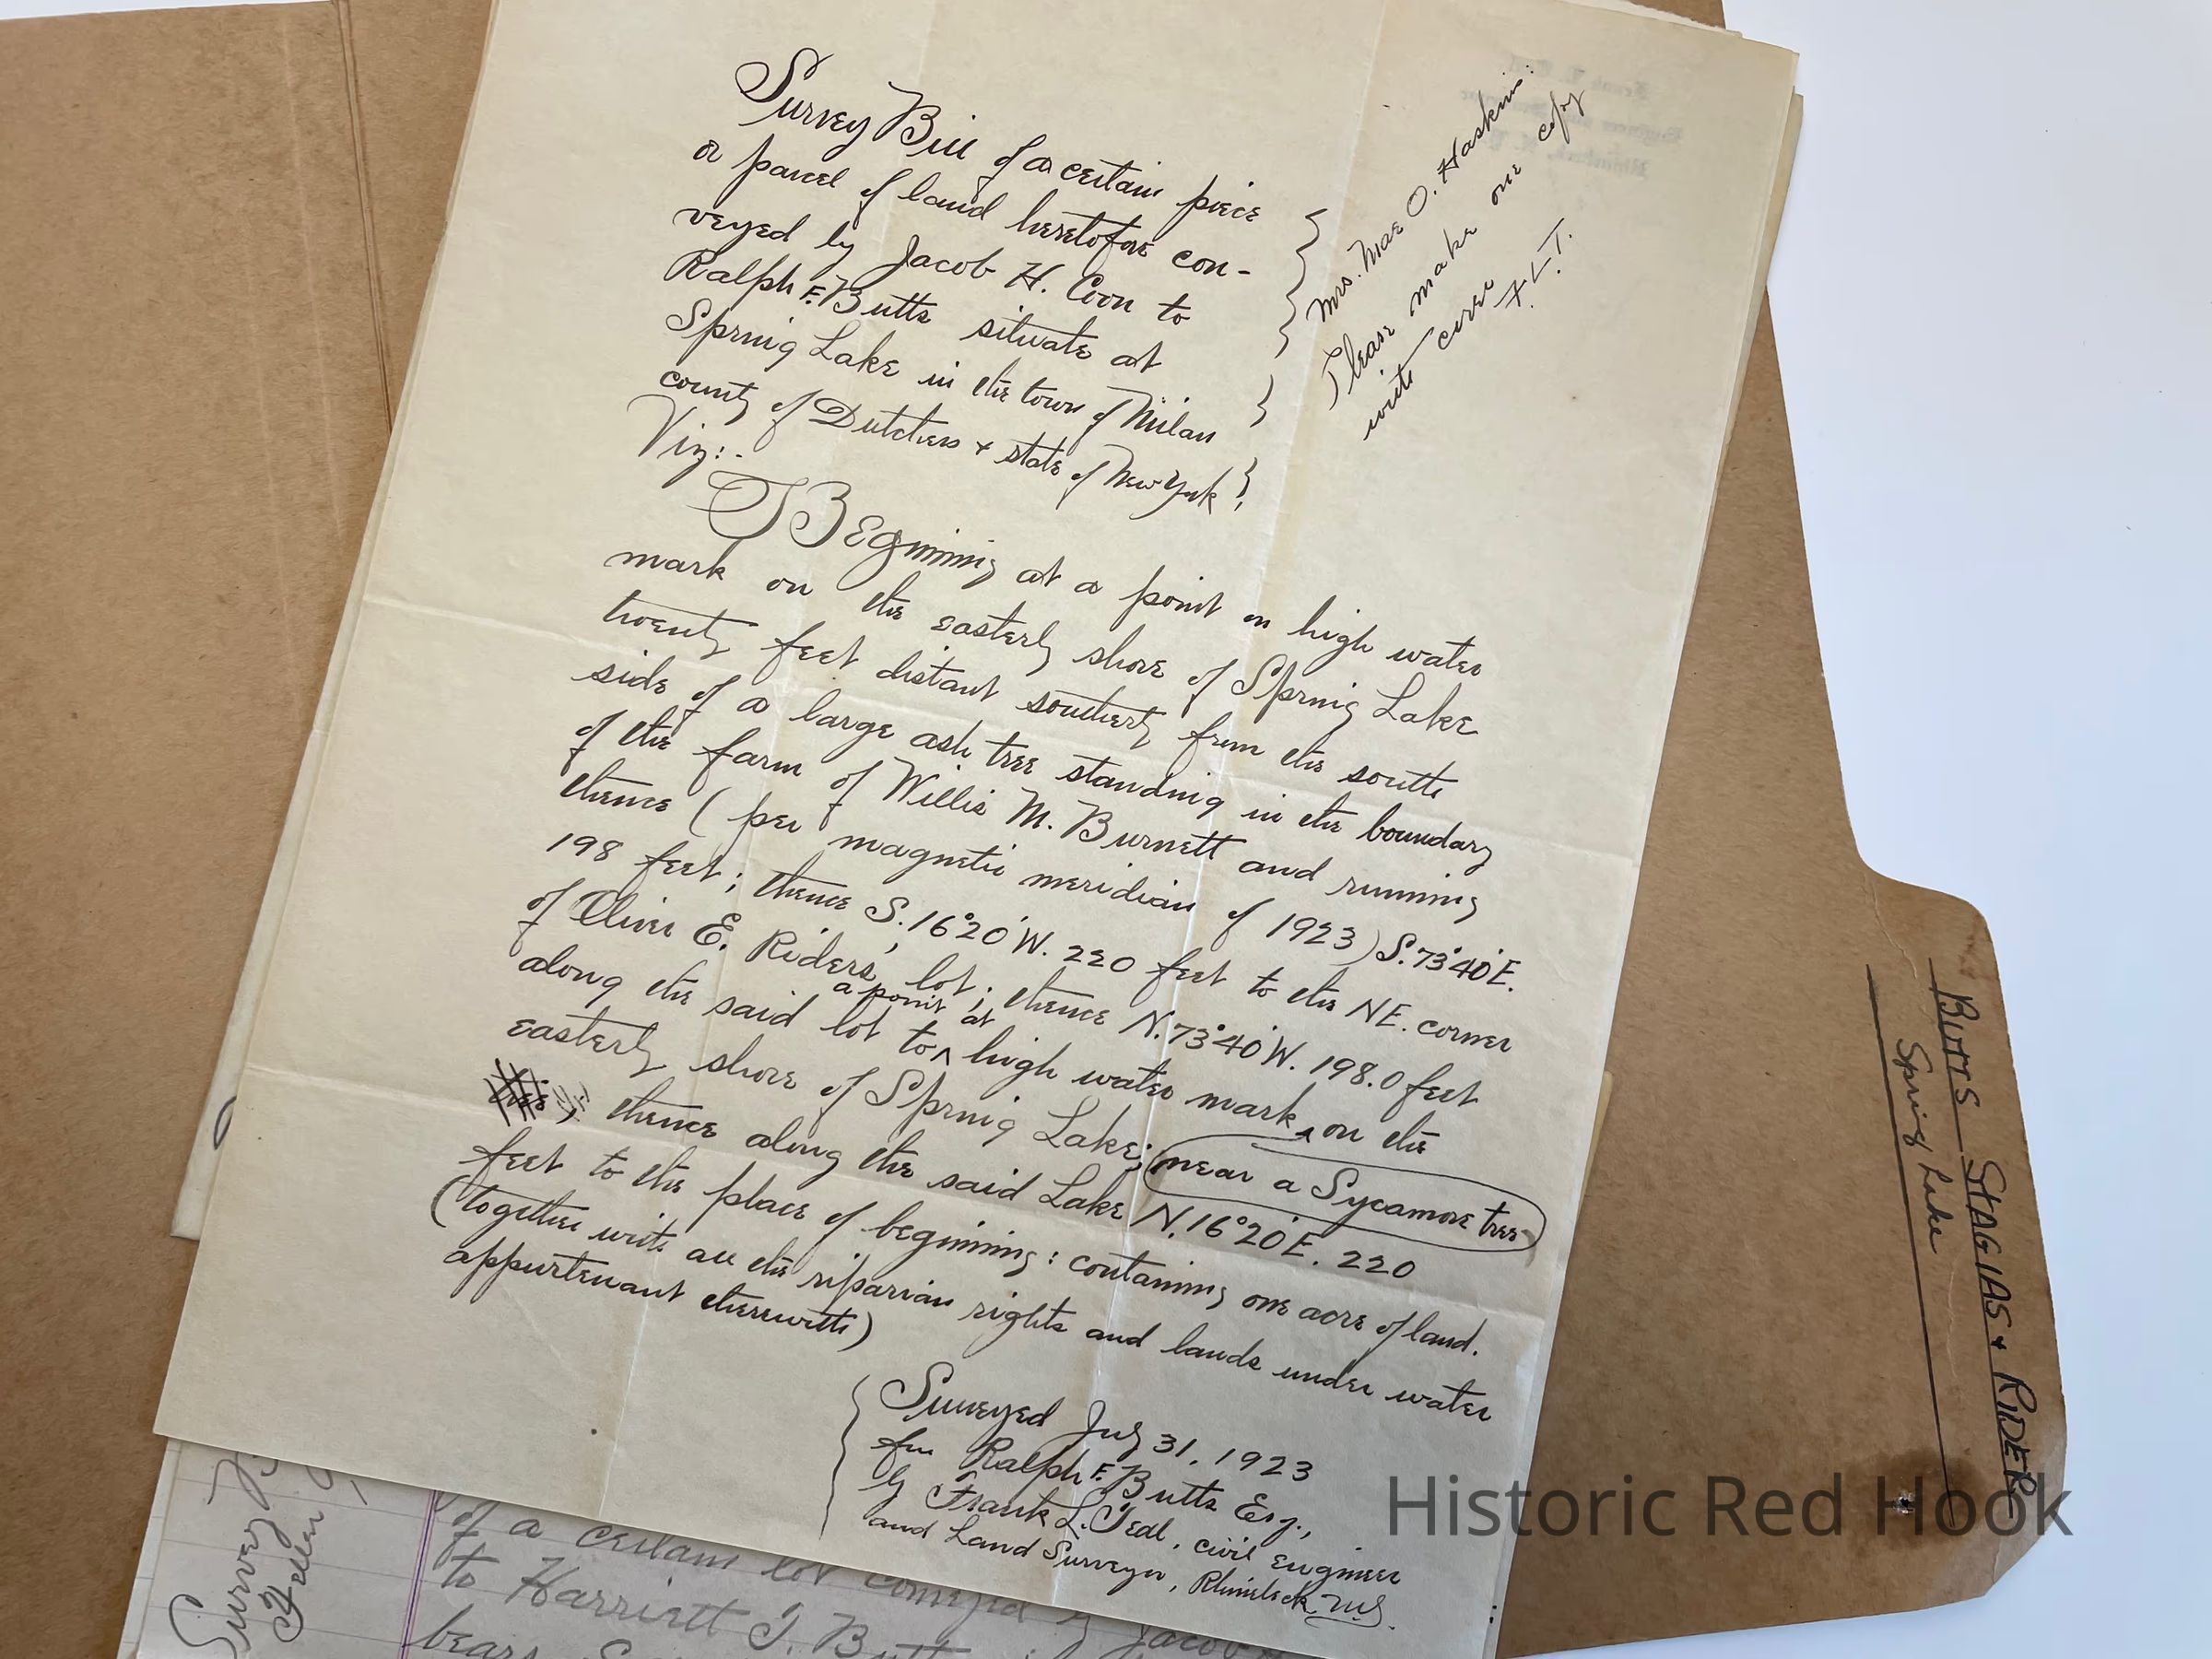 Survey Bill of a certain piece
or parcel of land heretofore con-
veyed by Jacob H. Coon to
Ralph F. Butts situate at
Spring Lake in the town of Milan
county of Dutchess & state of New York;
Viz:-
Mrs. Mae O. Haskins:
Please make one copy
with cover
F.L.T.
Beginning at a point on high water
mark on the easterly shore of Spring Lake
twenty feet distant southerly from the south
side of a large ash tree standing in the boundary
of the farm of Willis M. Burnett and running
thence (per magnetic meridian of 1923) S. 73°40'E.
198 feet; thence S. 16°20'W. 220 feet to the NE. corner
of Oliver E. Rider's lot; thence N. 73°40'W. 198.0 feet
along the said lot to a point at high water mark on the
easterly shore of Spring Lake; near a Sycamore tree
thence along the said Lake N. 16°20'E. 220
feet to the place of beginning: containing one acre of land.
(together with all the riparian rights and lands under water
appurtenant therewith)
Surveyed July 31, 1923
for Ralph F. Butts Esq.,
by Frank L. Teal, civil Engineer
and Land Surveyor, Rhinebeck, N.Y.
BUTTS STAGIAS & RIDER
Spring Lake
Survey
of a certain lot conveyed by Jacob
to Harriett T. Butts
bears
Historic Red Hook